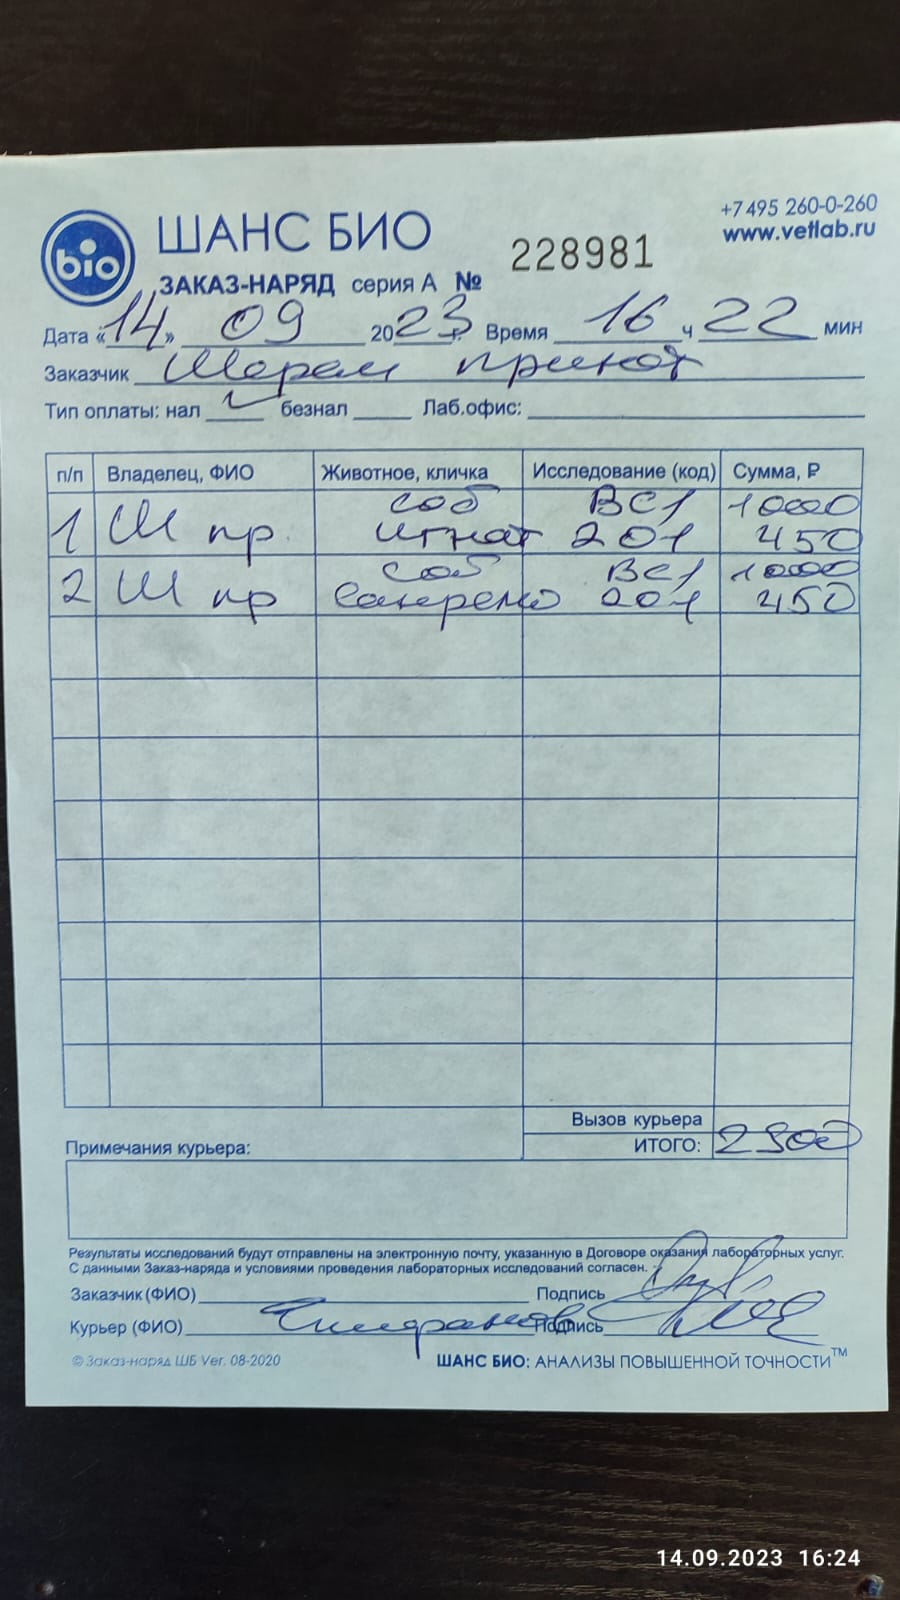 +7 495 260-0-260
www.vetlab.ru
bio
ШАНС БИО
ЗАКАЗ-НАРЯД серия А № 228981
Дата «14» 09 2023 г. Время 16 ч 22 мин
Заказчик приют
Тип оплаты: нал ✓ безнал Лаб.офис:
п/п Владелец, ФИО Животное, кличка Исследование (код) Сумма, ₽
соб ВС1 1000
1 Ш пр. Игнат 201 450
соб ВС1 1000
2 Ш пр Санремо 201 450
Вызов курьера
Примечания курьера: ИТОГО: 2900
Результаты исследований будут отправлены на электронную почту, указанную в Договоре оказания лабораторных услуг.
С данными Заказ-наряда и условиями проведения лабораторных исследований согласен.
Заказчик (ФИО) Подпись
Курьер (ФИО) Подпись
© Заказ-наряд ШБ Ver. 08-2020 ШАНС БИО: АНАЛИЗЫ ПОВЫШЕННОЙ ТОЧНОСТИ™
14.09.2023 16:24